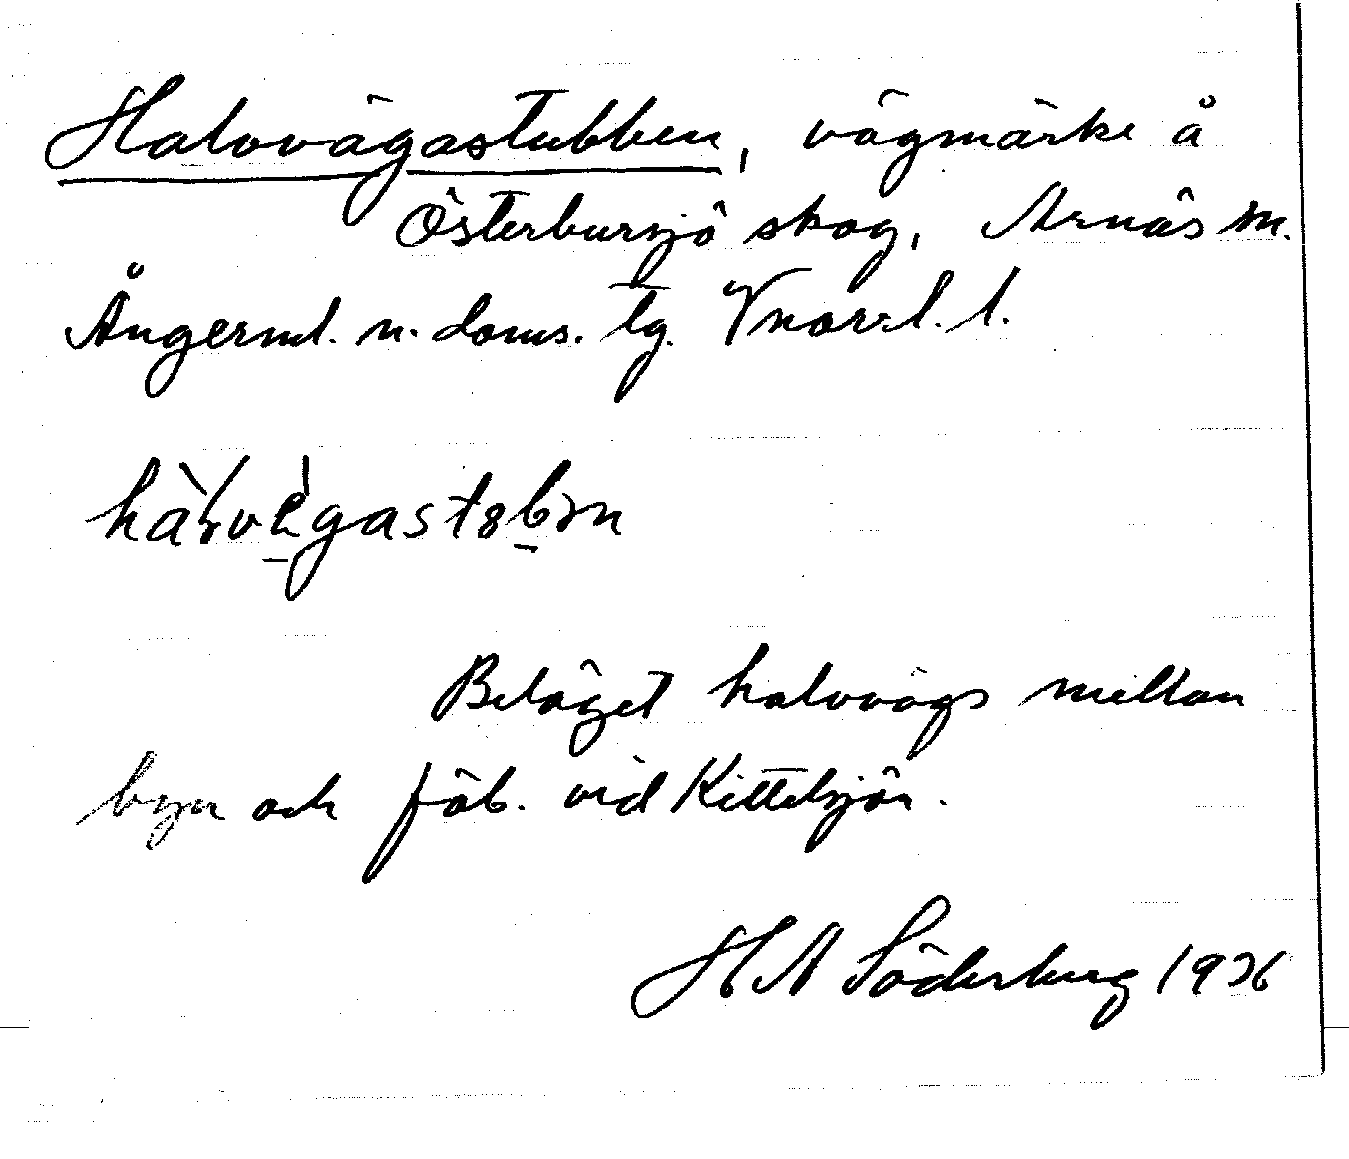 Halvvägastubben, vägmärke å
Österbursjö skog, Arnäs sn.
Ångerml. n. doms. tg. Vnorrl. l.
Beläget halvvägs mellan
byn och fäb. vid Kittelsjön.
H A Söderberg 1926